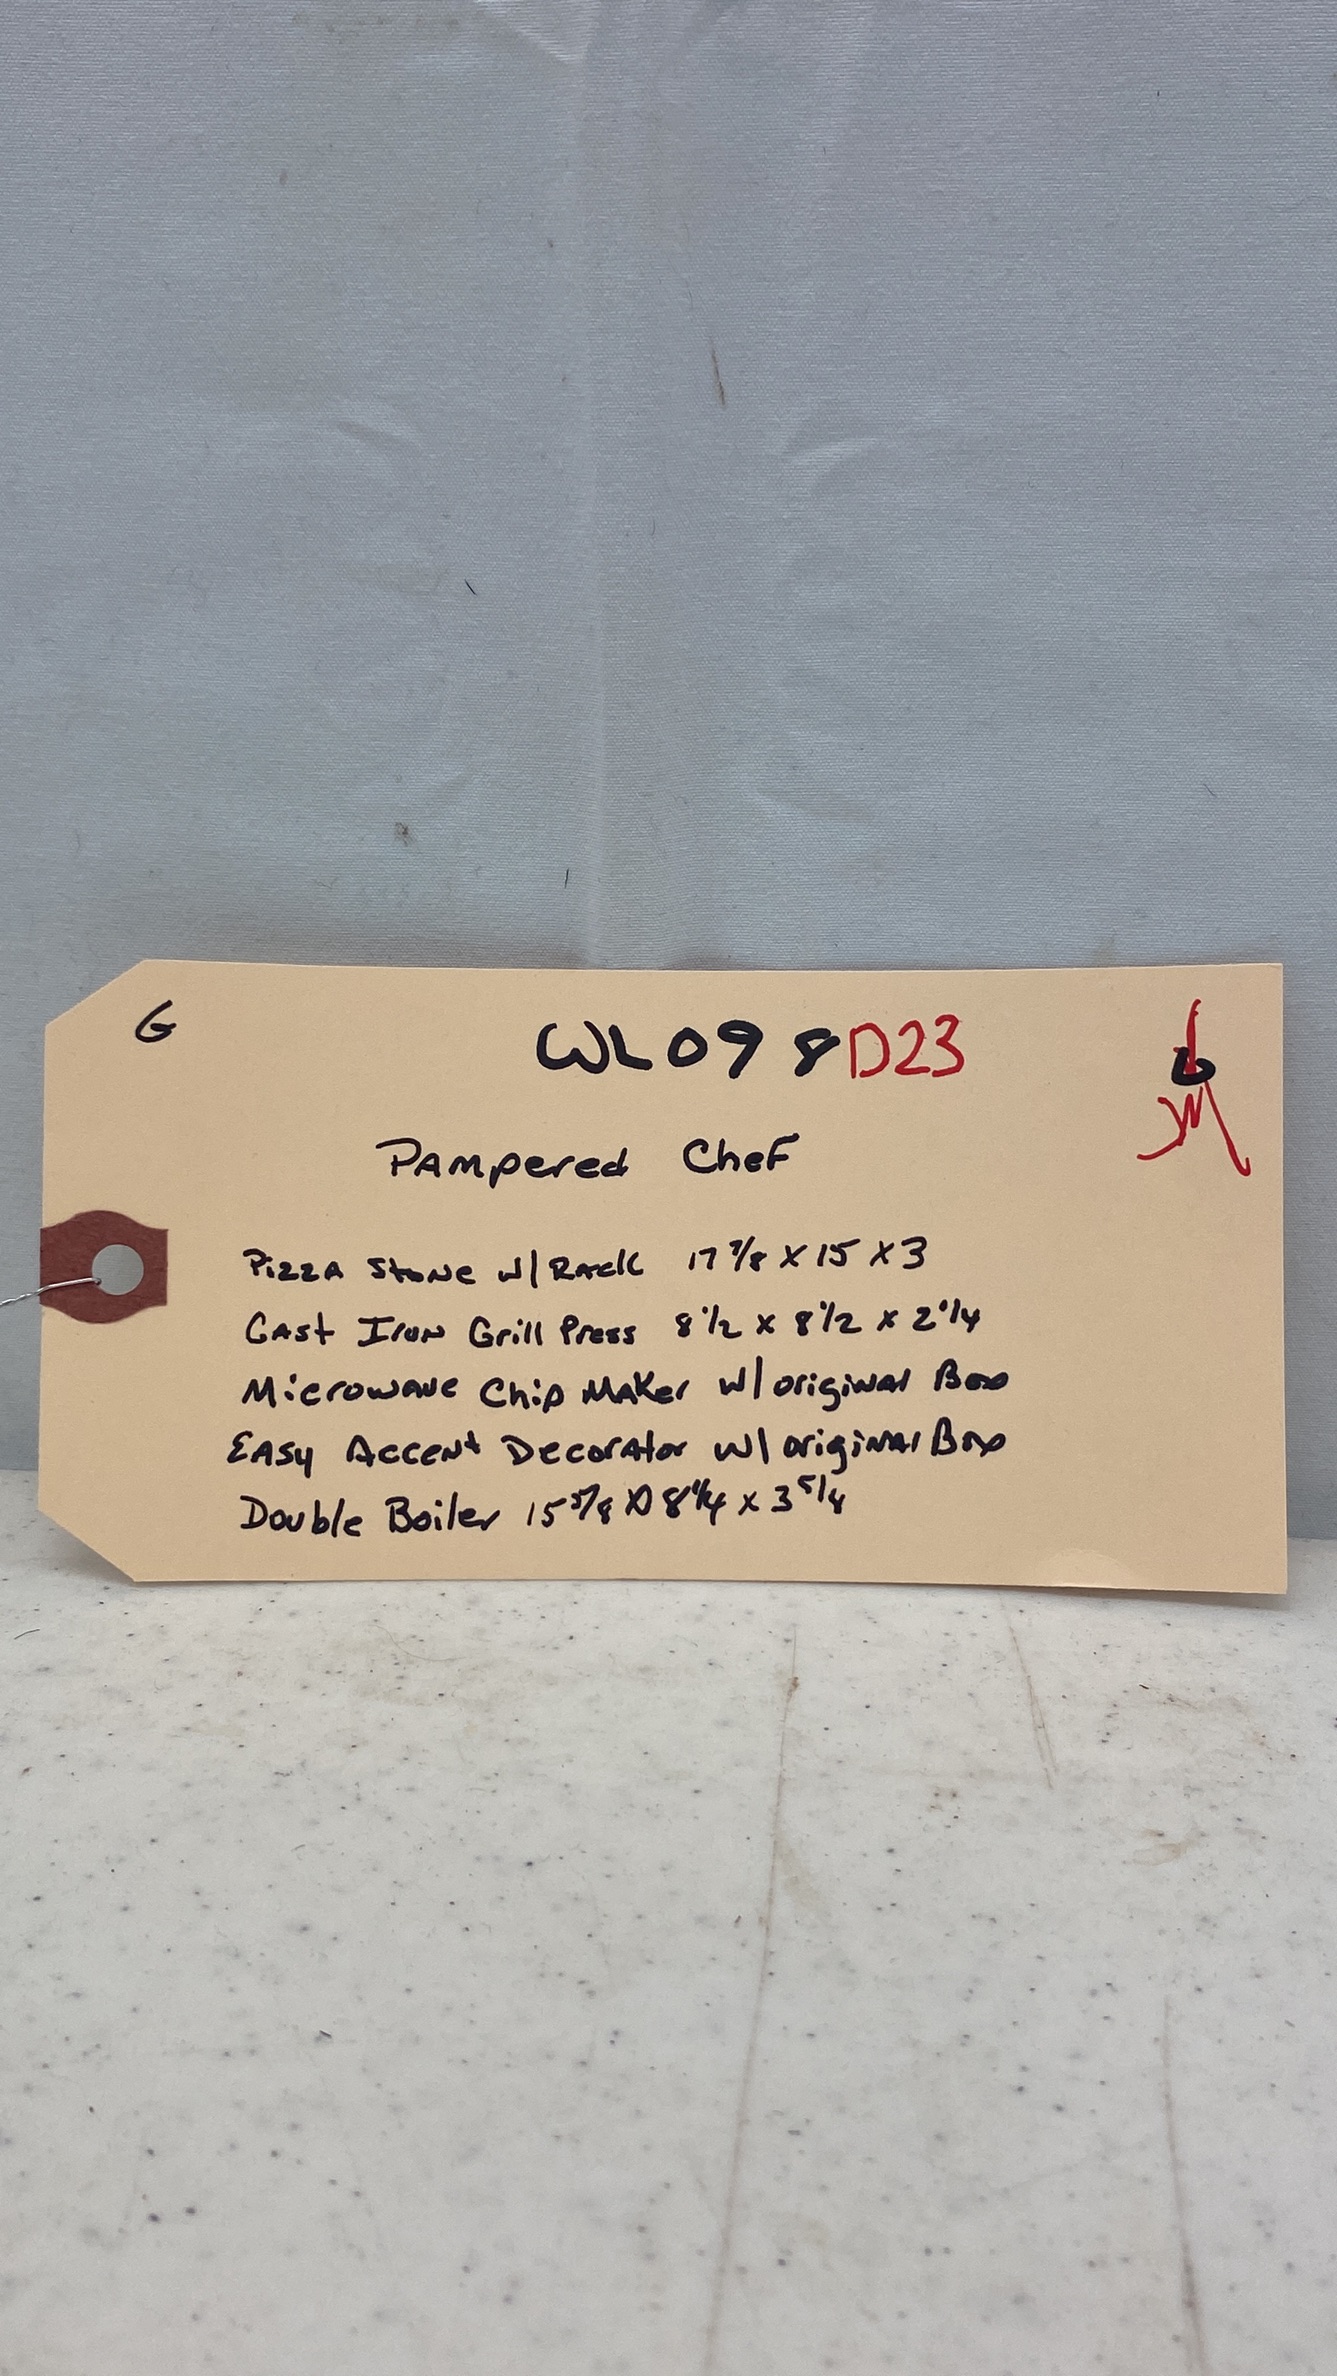 G
WL098D23
Pampered Chef
Pizza Stone w/ Rack 17 7/8 x 15 x 3
Cast Iron Grill Press 8 1/2 x 8 1/2 x 2 1/4
Microwave Chip Maker w/ original Box
Easy Accent Decorator w/ original Box
Double Boiler 15 5/8 x 8 1/4 x 3